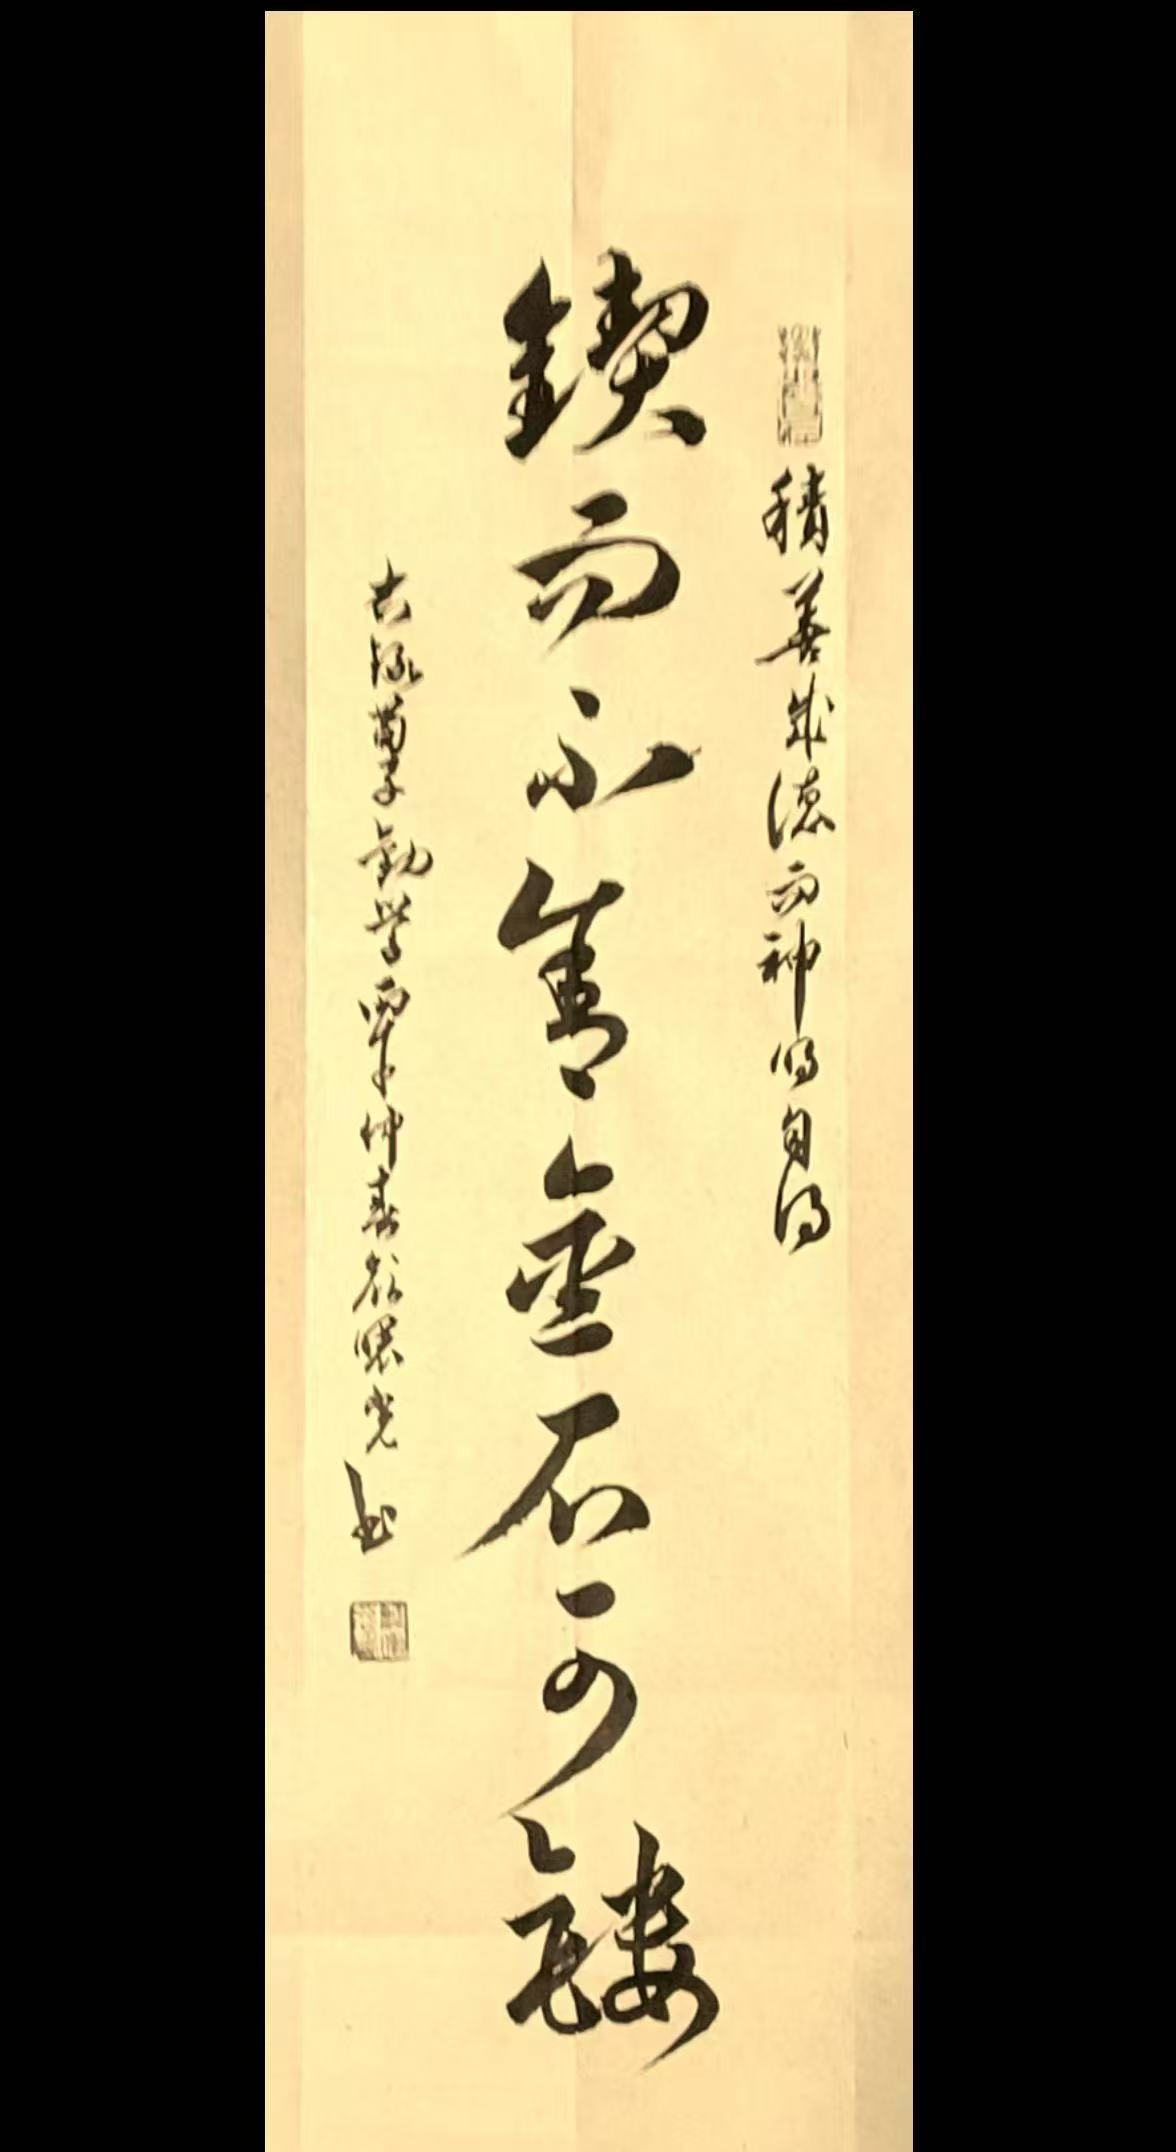 積善成德而神明自得
鍥而不舍金石可鏤
右錄荀子勸學仲春曙光書